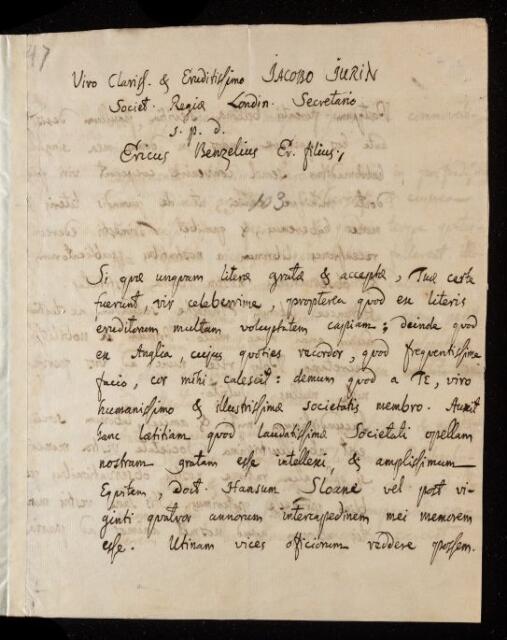 47
Viro Clariss. & Eruditissimo JACOBO JURIN
Societ. Regiæ Londin. Secretario
s. p. d.
Ericus Benzelius Er. filius,
Si quæ unquam literæ gratæ & acceptæ, Tuæ certe
fuerunt, vir celeberrime, propterea quod ex literis
eruditorum multam voluptatem capiam; deinde quod
ex Anglia, cujus quoties recordor, quod frequentissime
facio, cor mihi calescit: demum quod a TE, viro
humanissimo & illustrissimæ societatis membro. Auxit
hanc lætitiam quod laudatissimæ Societati opellam
nostram gratam esse intellexi, & amplissimum
Equitem, Doct. Hansum Sloane vel post vi-
ginti qvatvor annorum intercapedinem mei memorem
esse. Utinam vices officiorum reddere possem.